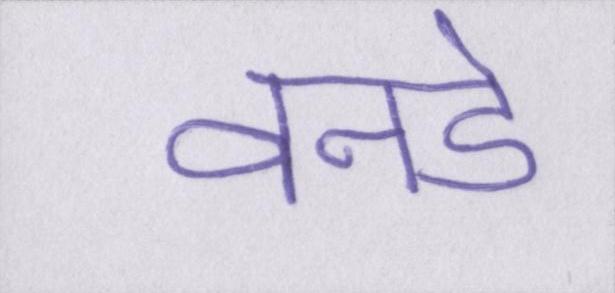 वनडे